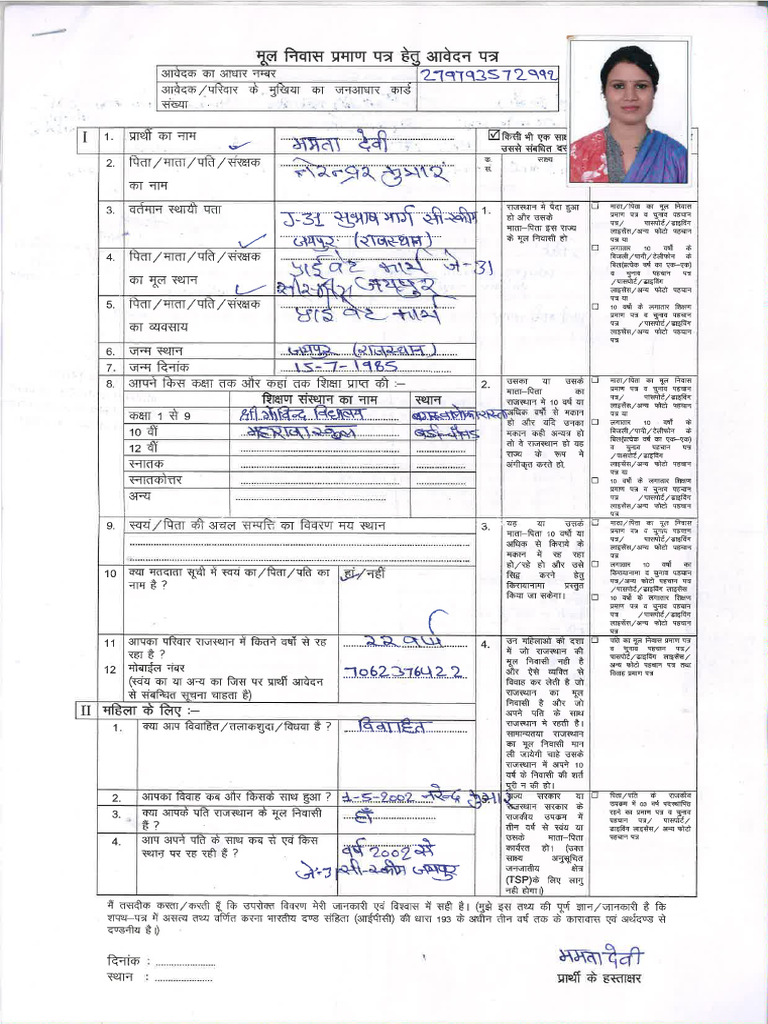 मूल निवास प्रमाण पत्र हेतु आवेदन पत्र
आवेदक का आधार नम्बर 279793572992
आवेदक/परिवार के मुखिया का जनआधार कार्ड
संख्या
I
1. प्रार्थी का नाम ममता देवी
2. पिता/माता/पति/संरक्षक
का नाम नरेन्द्र कुमार
3. वर्तमान स्थायी पता J-31 सुभाष मार्ग सी-स्कीम
जयपुर (राजस्थान)
4. पिता/माता/पति/संरक्षक
का मूल स्थान जे-31
सी-स्कीम जयपुर
5. पिता/माता/पति/संरक्षक
का व्यवसाय प्राईवेट कार्य
6. जन्म स्थान जयपुर (राजस्थान)
7. जन्म दिनांक 15-7-1985
8. आपने किस कक्षा तक और कहां तक शिक्षा प्राप्त की :–
शिक्षण संस्थान का नाम स्थान
कक्षा 1 से 9 श्री गोविन्द विद्यालय
10 वीं महाराजा स्कूल
12 वीं
स्नातक
स्नातकोत्तर
अन्य
9. स्वयं/पिता की अचल सम्पत्ति का विवरण मय स्थान
10 क्या मतदाता सूची में स्वयं का/पिता/पति का हां/नहीं
नाम है ?
11 आपका परिवार राजस्थान में कितने वर्षो से रह २२ वर्ष
रहा है ?
12 मोबाईल नंबर 7062376422
(स्वंय का या अन्य का जिस पर प्रार्थी आवेदन
से संबन्धित सूचना चाहता है)
☑ किसी भी एक
उससे संबंधित
क्र.
सं.
लक्ष्य
1. राजस्थान मे पैदा हुआ
हो और उसके
माता–पिता इस राज्य
के मूल निवासी हो
माता/पिता का मूल निवास
प्रमाण पत्र व चुनाव पहचान
पत्र/ पासपोर्ट/ड्राइविंग
लाइसेंस/अन्य फोटो पहचान
पत्र या
लगातार 10 वर्षो के
बिजली/पानी/टेलीफोन के
बिल(प्रत्येक वर्ष का एक–एक)
व चुनाव पहचान पत्र
/पासपोर्ट/ड्राइविंग
लाइसेंस/अन्य फोटो पहचान
पत्र या
10 वर्षो के लगातार शिक्षण
प्रमाण पत्र व चुनाव पहचान
पत्र /पासपोर्ट/ड्राइविंग
लाइसेंस/अन्य फोटो पहचान
पत्र
2. उसका या उसके
माता–पिता का
राजस्थान मे 10 वर्ष या
अधिक वर्षो से मकान
हो और यदि उनका
मकान कही अन्यत्र हो
तो वे राजस्थान हो यह
राज्य के रूप मे
अंगीकृत करते हो.
माता/पिता का मूल निवास
प्रमाण पत्र व चुनाव पहचान
पत्र / पासपोर्ट/ड्राइविंग
लाइसेंस/अन्य फोटो पहचान
पत्र या
लगातार 10 वर्षो के
बिजली/पानी/टेलीफोन के
बिल(प्रत्येक वर्ष का एक–एक)
व चुनाव पहचान पत्र
/पासपोर्ट/ड्राइविंग
लाइसेंस/अन्य फोटो पहचान
पत्र या
10 वर्षो के लगातार शिक्षण
प्रमाण पत्र व चुनाव पहचान
पत्र /पासपोर्ट/ड्राइविंग
लाइसेंस/अन्य फोटो पहचान
पत्र
3. यह या उसके
माता–पिता 10 वर्षो या
अधिक से किराये के
मकान में रह रहा
हो/रहे हो और उसे
सिद्व करने हेतु
किरायानामा प्रस्तुत
किया जा सकेगा।
माता/पिता का मूल निवास
प्रमाण पत्र व चुनाव पहचान
पत्र/ पासपोर्ट/ड्राइविंग
लाइसेंस/अन्य फोटो पहचान
पत्र
लगातार 10 वर्षो का
किरायानामा व चुनाव पहचान
पत्र/अन्य फोटो पहचान पत्र
/पासपोर्ट/ड्राइविंग लाइसेंस
10 वर्षो के लगातार शिक्षण
प्रमाण पत्र व चुनाव पहचान
पत्र /पासपोर्ट/ड्राइविंग
लाइसेंस/अन्य फोटो पहचान
पत्र
4. उन महिलाओ की दशा
में जो राजस्थान की
मूल निवासी नही है
और ऐसे व्यक्ति से
विवाह कर लेती है जो
राजस्थान का मूल
निवासी है और जो
अपने पति के साथ
राजस्थान मे रहती है।
सामान्यतया राजस्थान
का मूल निवासी मान
ली जायेगी चाहे उसके
राजस्थान में अपने 10
वर्ष के निवासी की शर्त
पूरी न की हो।
पति का मूल निवास प्रमाण पत्र
व चुनाव पहचान पत्र/
पासपोर्ट/ड्राइविंग लाइसेंस/
अन्य फोटो पहचान पत्र तथा
विवाह प्रमाण पत्र
राज्य सरकार या
राजस्थान सरकार के
राजकीय उपक्रम में
तीन वर्ष से स्वंय या
उसके माता–पिता
कार्यरत हो। (उक्त
साक्ष्य अनुसूचित
जनजातीय क्षेत्र
(TSP)के लिए लागु
नही होगा।)
पिता/पति के राजकीय
उपक्रम में 03 वर्ष पदस्थापित
रहने का प्रमाण पत्र व चुनाव
पहचान पत्र/ पासपोर्ट/
ड्राइविंग लाइसेंस/ अन्य फोटो
पहचान पत्र
II महिला के लिए :–
1. क्या आप विवाहित/तलाकशुदा/विधवा है ? विवाहित
2. आपका विवाह कब और किसके साथ हुआ ? 1-5-2002 नरेन्द्र कुमार
3. क्या आपके पति राजस्थान के मूल निवासी हाँ
हैं ?
4. आप अपने पति के साथ कब से एवं किस वर्ष 2002 से
स्थान पर रह रही हैं ? जे-31 सी-स्कीम जयपुर
मैं तसदीक करता/करती हूँ कि उपरोक्त विवरण मेरी जानकारी एवं विश्वास में सही है। (मुझे इस तथ्य की पूर्ण ज्ञान/जानकारी है कि
शपथ–पत्र में असत्य तथ्य वर्णित करना भारतीय दण्ड संहिता (आईपीसी) की धारा 193 के अधीन तीन वर्ष तक के कारावास एवं अर्थदण्ड से
दण्डनीय है।)
दिनांक :
स्थान :
ममता देवी
प्रार्थी के हस्ताक्षर